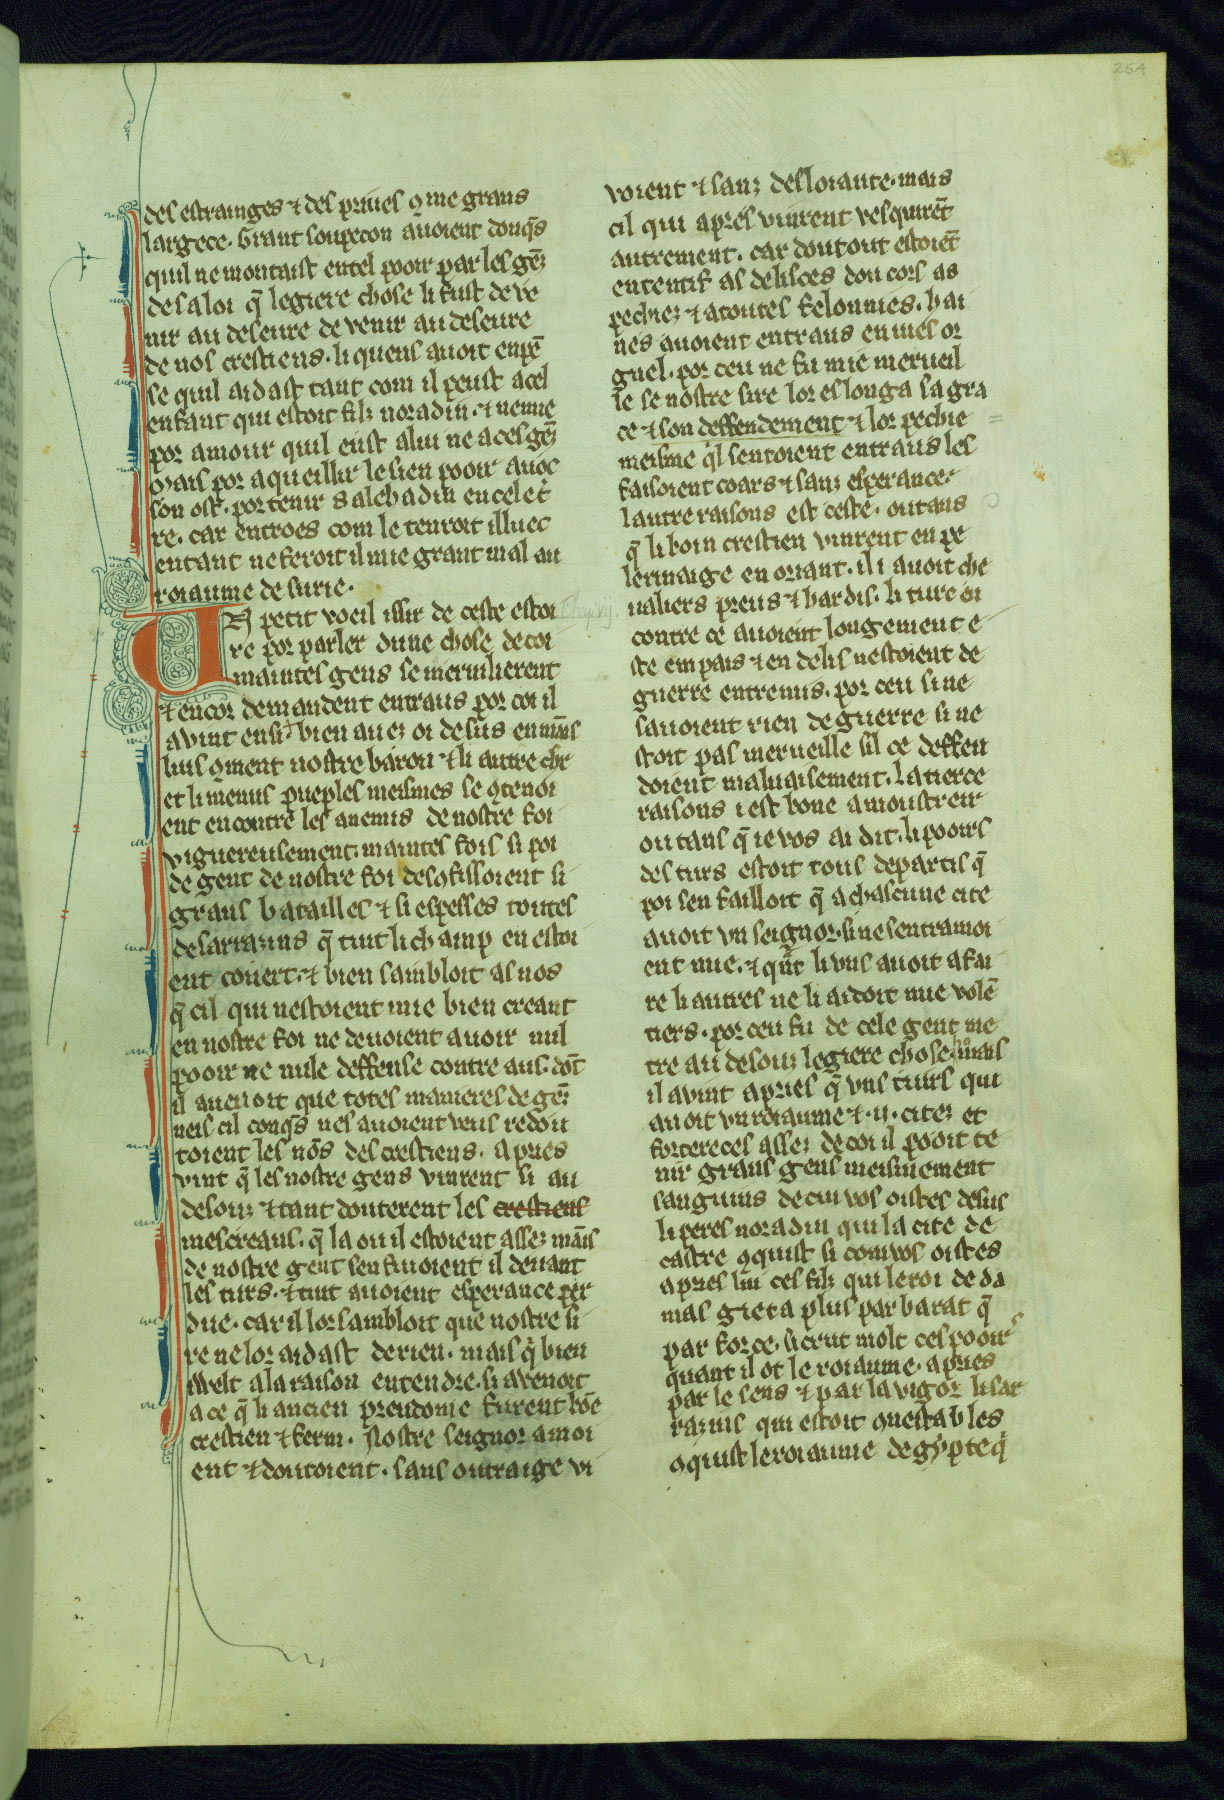 254
des estrainges ⁊ des priues ꝯme grans
largece. Grant soupecon auoient donq̄s
quil ne montaist entel pooir par les gēz
de sa loi q̄ legiere chose li fust de ve
nir au deseure de venir au deseure
de nos crestiens. li quens auoit enpē
se quil aidast tant com il peust a cel
enfant qui estoit filz noradin. ⁊ nemie
por amour quil eust a lui ne a ces gēz
Mais por aqueillir le sien pooir auoc
son ost. por tenir Salehadin en cel et̓
re. car entroes com le tenroit illuec
entant ne feroit il mie grant mal au
roiaume de surie.
Un petit voeil issir de ceste estoi
re por parler dune chose de coi
maintes gens se mervilierent
⁊ encor demandent entraus por coi il
avint ensi. bien auez oi desus en mains
luis ꝯment nostre baron ⁊ li autre chr̄
et li menus pueples meismes se ꝯtenoi
ent encontre les anemis de nostre foi
viguereusement. maintes fois si poi
de gent de nostre foi desꝯfissoient si
grans batailles ⁊ si espesses toutes
de sarrazins q̄ tint li champ en estoi
ent couert. ⁊ bien sambloit as nos
q̄ cil qui nestoient mie bien creant
en nostre foi ne devoient avoir nul
pooir ne nule deffense contre aus. dōt
il auenoit que totes manieres de gēz
neis cil conq̄s nes auoient veus redou
toient les nōs des crestiens. Apries
vint q̄ les nostre gens vinrent si au
desouz ⁊ tant douterent les crestiens
mescreans. q̄ la ou il estoient assez māis
de nostre gent senfuioient il deuant
les turs. ⁊ tuit auoient esperance per
due. car il lor sambloit que nostre si
re ne lor aidast de rien. mais q̓ bien
welt a la raison entendre. si avenoit
a ce q̄ li ancien preudome furent bōe
crestien ⁊ ferm. Nostre seignor amoi
ent ⁊ doutoient. sans outraige vi
voient ⁊ sanz desloiaute. mais
cil qui apres vinrent vesquirēt
autrement. car dou tout estoiēt
ententif as delisces dou cors as
pechiez ⁊ a toutes felonnies. hai
nes auoient entraus enuies or
guel. por ceu ne fu mie merueil
le se nostre sire lor eslonga sa gra
ce ⁊ son deffendement ⁊ lor pechie
meisme q̓l sentoient entraus les
faisoient coars ⁊ sanz esperance.
lautre raisons est ceste. ou tans
q̄ li boin crestien vinrent en pe
lerinaige en oriant. il i auoit che
ualiers preus ⁊ hardis. li turc en
contre ce auoient longement e
ste em pais ⁊ en delis nestoient de
guerre entremis. por ceu si ne
sauoient rien de guerre si ne
stoit pas merueille sil ce deffen
doient maluaisement. La tierce
raisons i est bone a moustreir
ou tans q̄ ie vos ai dit. li pooirs
des turs estoit tous departis q̄
poi sen failloit q̄ a chascune cite
auoit vn seignor. si ne sentramoi
ent mie. ⁊ qn̄t li vns auoit a fai
re li autres ne li aidoit mie volē
tiers. por ceu fu de cele gent me
tre au desouz legiere chose. mais
il avint apries q̄ vns turs qui
auoit vn roiaume ⁊ .ij. citez et
forcereces assez de coi il pooit te
nir grans gens meismement
sanguins de cui vos oistes desus
li peres noradin qui la cite de
castre ꝯquist si com vos oistes
apries lui ces filz qui le roi de da
mas gieta plus par barat q̄
par force. si crut molt ces pooirs
quant il ot le roiaume. apries
par le sens ⁊ par la vigor li sar
razins qui estoit ꝯnestables
ꝯquist le roiaume degypte q̓